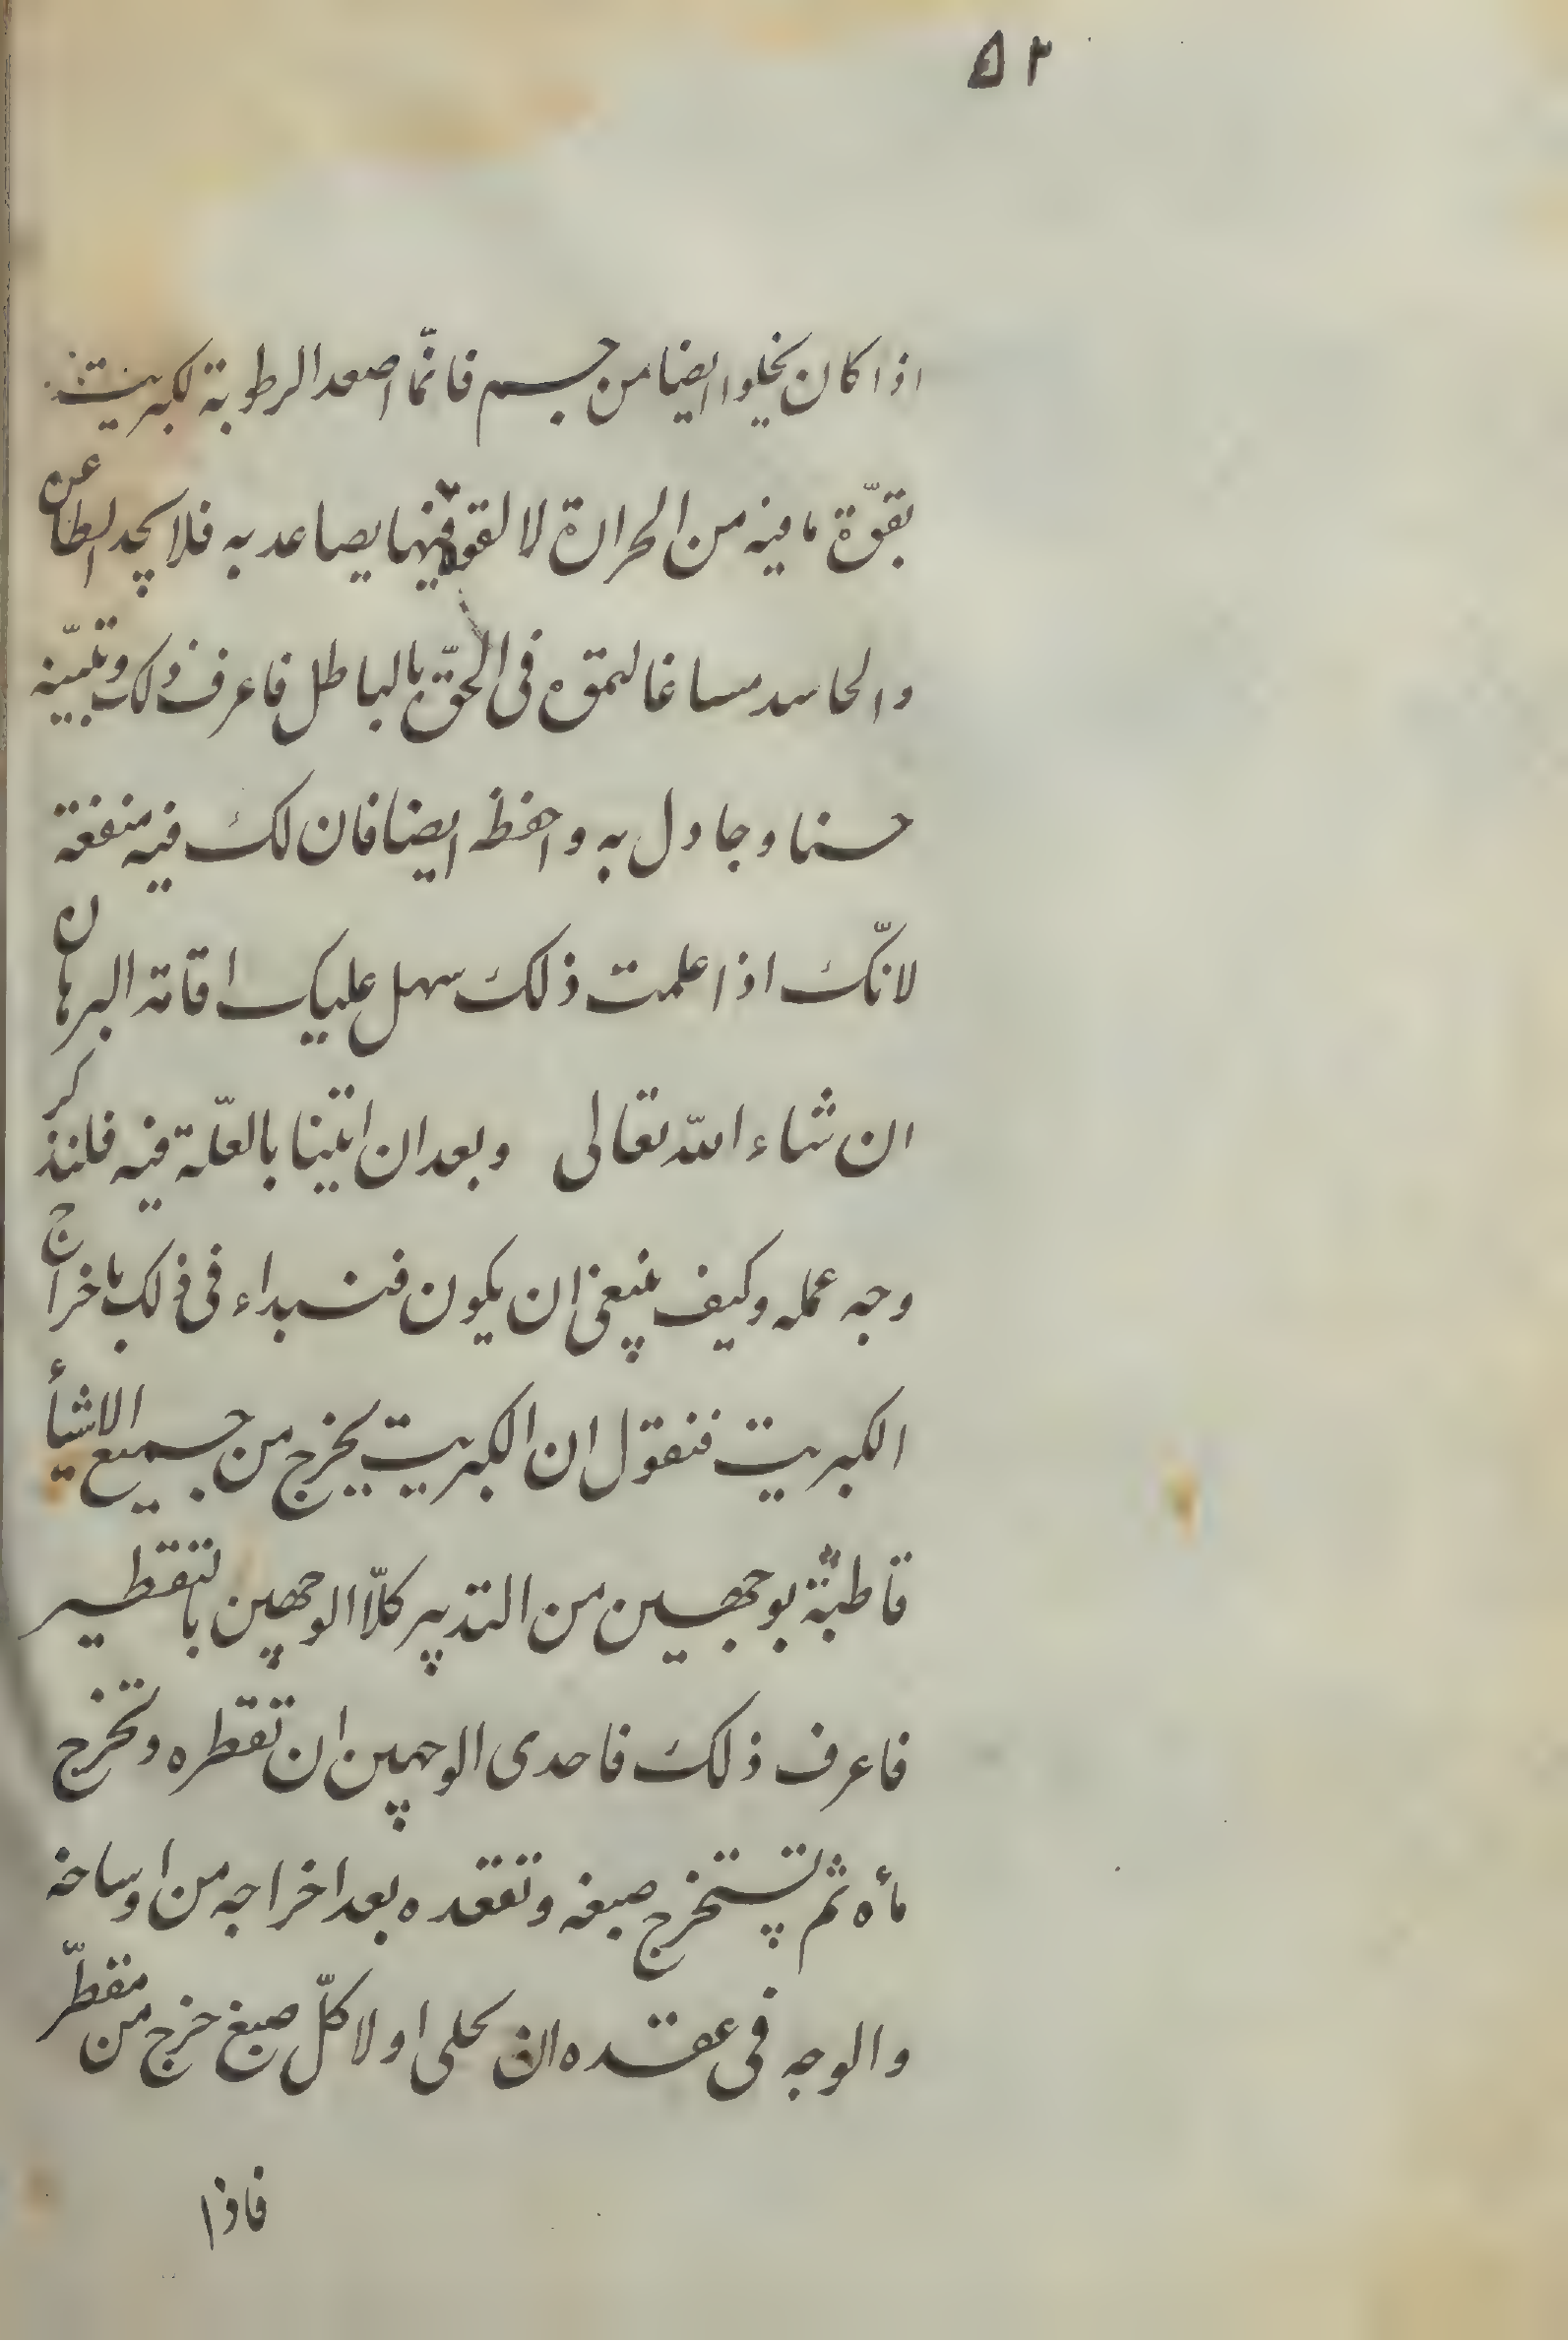 ٥٢
اذا كان يخلوا ايضا من جسم فانّما اصعد الرطوبة لكبريت
بقوّة ما فيه من الحرارة لا لقوة فيها يصاعد به فلا يجد الطاعن
والحاسد مساغا ليموّه فى الحقّ بالباطل فاعرف ذلك وتبيّنه
حسنا وجادل به واحفظه ايضا فان لك فيه منفعة
لانّك اذا علمت ذلك سهل عليك اقامة البرهان
ان شاء الله تعالى وبعد ان اتينا بالعلّة فيه فلنذكر
وجه عمله وكيف ينبغى ان يكون فنبداء فى ذلك باخراج
الكبريت فنقول ان الكبريت يخرج من جميع الاشيأ
قاطبة بوجهين من التدبير كلّا الوجهين بالتقطير
فاعرف ذلك فاحدى الوجهين ان تقطره وتخرج
مأه ثم تستخرج صبغه وتعقده بعد اخراجه من اوساخه
والوجه فى عقده ان تحلى اولا كلّ صبغ خرج من مقطّر
فاذا